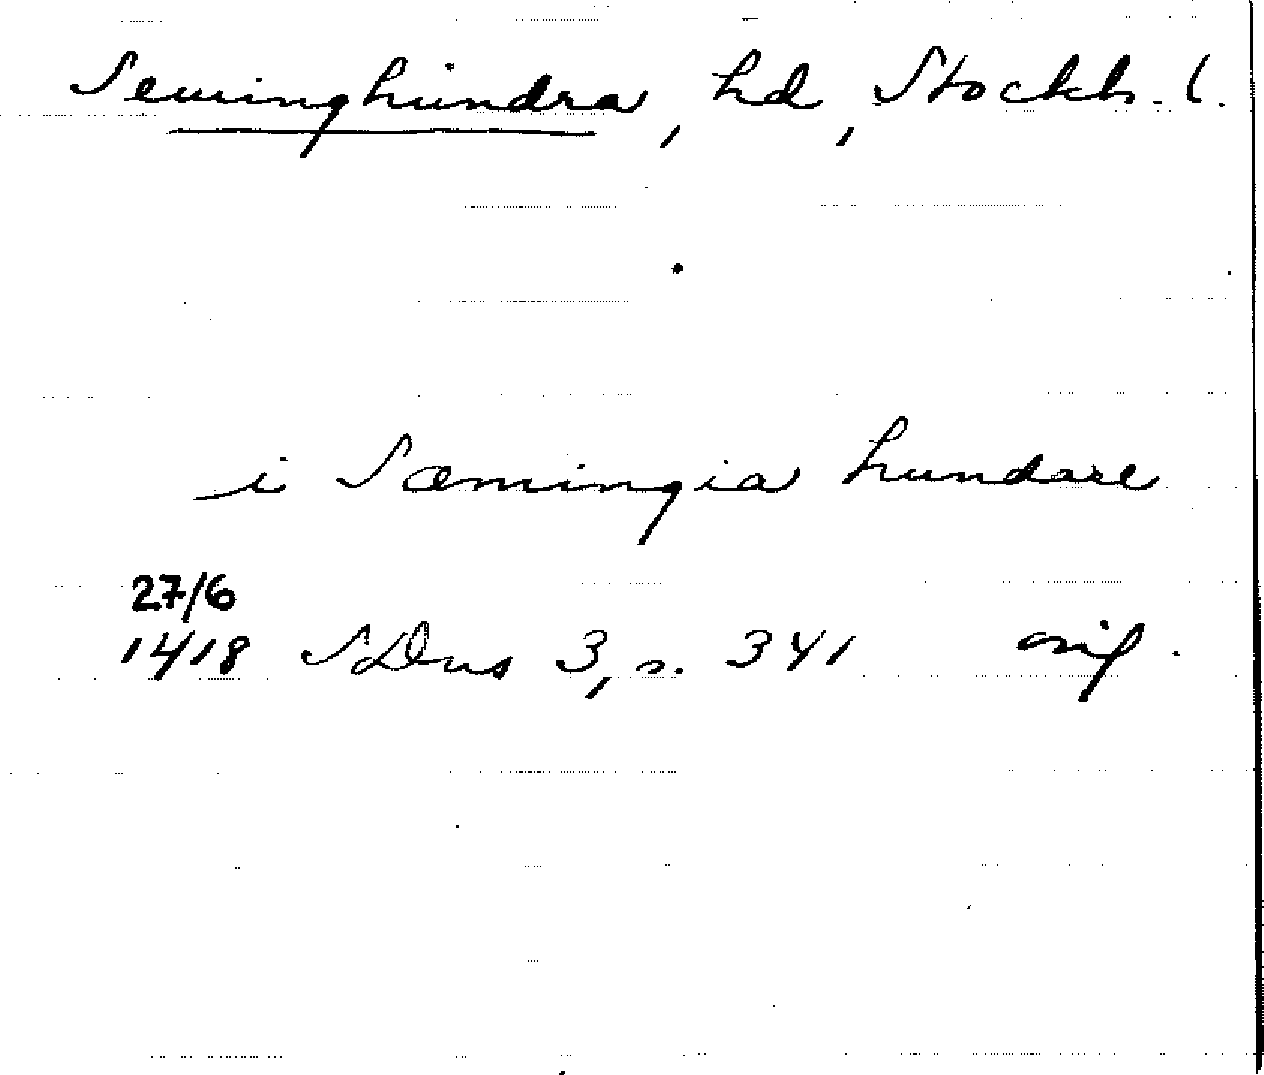 Seminghundra, hd, Stockh. l.
i Sæmingia hundare
27/6
1418 SDns 3, s. 341 orig.